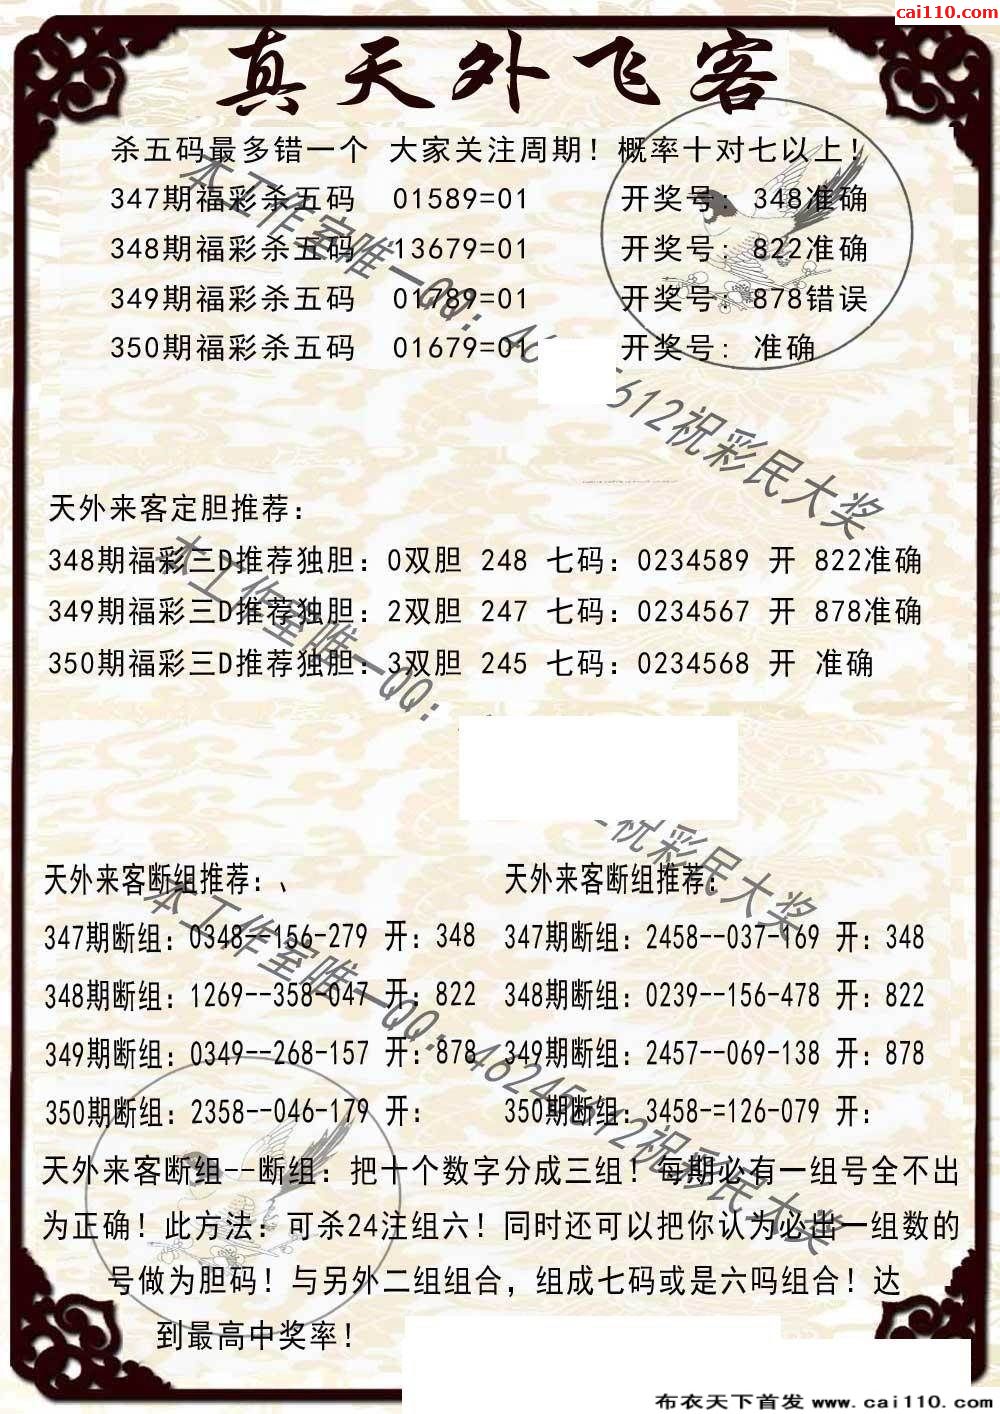 cai110.com
真天外飞客
杀五码最多错一个 大家关注周期！概率十对七以上！
347期福彩杀五码 01589=01 开奖号: 348准确
348期福彩杀五码 13679=01 开奖号: 822准确
349期福彩杀五码 01789=01 开奖号: 878错误
350期福彩杀五码 01679=01 开奖号: 准确
天外来客定胆推荐:
348期福彩三D推荐独胆: 0双胆 248 七码: 0234589 开 822准确
349期福彩三D推荐独胆: 2双胆 247 七码: 0234567 开 878准确
350期福彩三D推荐独胆: 3双胆 245 七码: 0234568 开 准确
天外来客断组推荐:、 天外来客断组推荐:
347期断组: 0348--156-279 开: 348 347期断组: 2458--037-169 开: 348
348期断组: 1269--358-047 开: 822 348期断组: 0239--156-478 开: 822
349期断组: 0349--268-157 开: 878 349期断组: 2457--069-138 开: 878
350期断组: 2358--046-179 开: 350期断组: 3458-=126-079 开:
天外来客断组--断组: 把十个数字分成三组！每期必有一组号全不出
为正确！此方法: 可杀24注组六！同时还可以把你认为必出一组数的
号做为胆码！与另外二组组合，组成七码或是六吗组合！达
到最高中奖率！
本工作室唯一QQ: 46 612祝彩民大奖
本工作室唯一QQ: 祝彩民大奖
本工作室唯一QQ: 46245612祝彩民大奖
布衣天下首发 www.cai110.com